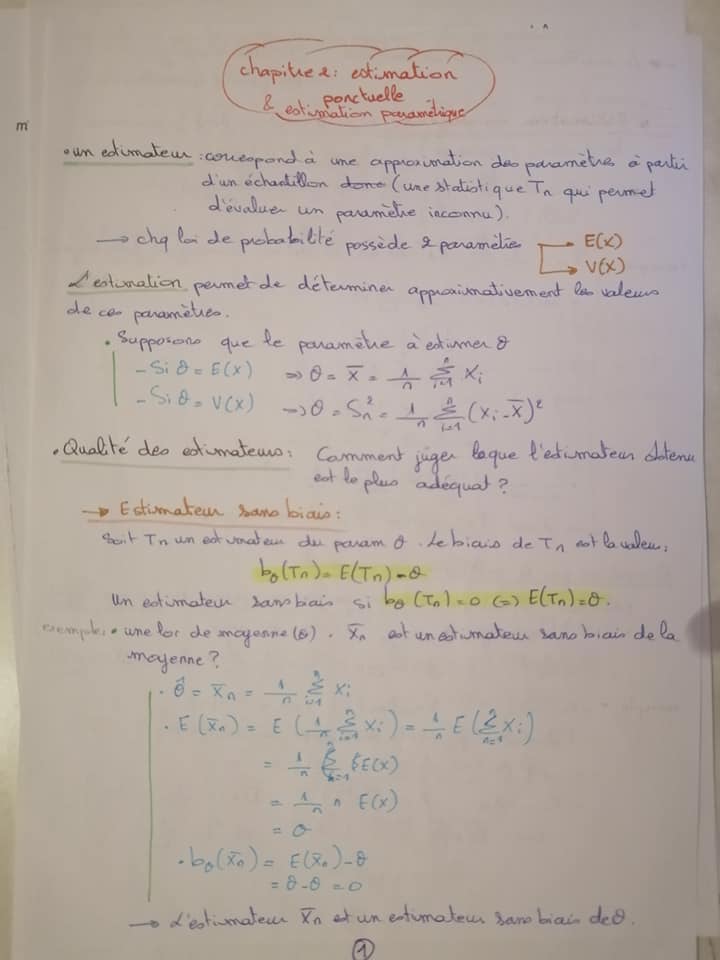 chapitre 2 : estimation
ponctuelle
& estimation paramétrique
m
• un estimateur : correspond à une approximation des paramètres à partir
d'un échantillon donc (une statistique Tn qui permet
d'évaluer un paramètre inconnu).
→ chq loi de probabilité possède 2 paramètres → E(x)
→ V(x)
L'estimation permet de déterminer approximativement les valeurs
de ces paramètres.
• Supposons que le paramètre à estimer θ
- Si θ = E(x) => θ = X̄ = 1/n Σ(i=1→n) Xi
- Si θ = V(x) => θ = S²n = 1/n Σ(i=1→n) (Xi - X̄)²
• Qualité des estimateurs : Comment jûger la que l'estimateur obtenu
est le plus adéquat ?
→ Estimateur sans biais :
Soit Tn un estimateur du param θ. Le biais de Tn est la valeur :
bθ(Tn) = E(Tn) - θ
Un estimateur sans biais si bθ(Tn) = 0 <=> E(Tn) = θ.
exemple : • une loi de moyenne (θ). X̄n est un estimateur sans biais de la
moyenne ?
• θ̂ = X̄n = 1/n Σ(i=1→n) Xi
• E(X̄n) = E(1/n Σ(i=1→n) Xi) = 1/n E(Σ(n=1→n) Xi)
= 1/n Σ E(x)
= 1/n n E(x)
= θ
• bθ(X̄n) = E(X̄n) - θ
= θ - θ = 0
→ L'estimateur X̄n est un estimateur sans biais de θ.
1